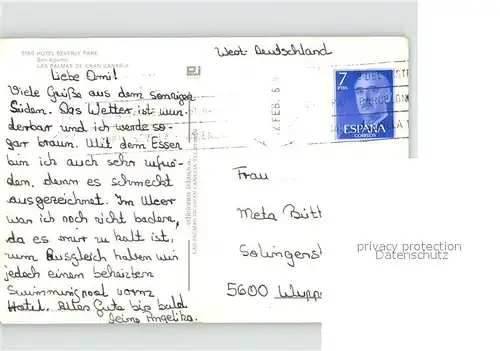 6166 HOTEL BEVERLY PARK
San Agustin
LAS PALMAS DE GRAN CANARIA
Liebe Omi!
Viele Grüße aus dem sonnigen
Süden. Das Wetter ist wun-
derbar und ich werde so-
gar braun. Mit dem Essen
bin ich auch sehr zufrie-
den, denn es schmeckt
ausgezeichnet. Im Meer
war ich noch nicht baden,
da es mir zu kalt ist,
zum Ausgleich haben wir
jedoch einen beheizten
Swimmingpool vorm
Hotel. Alles Gute bis bald
Deine Angelika.
West-Deutschland
7
PTAS
ESPAÑA
CORREOS
Frau
Meta Bütt
Solingerst
5600 Wupp
privacy protection
Datenschutz